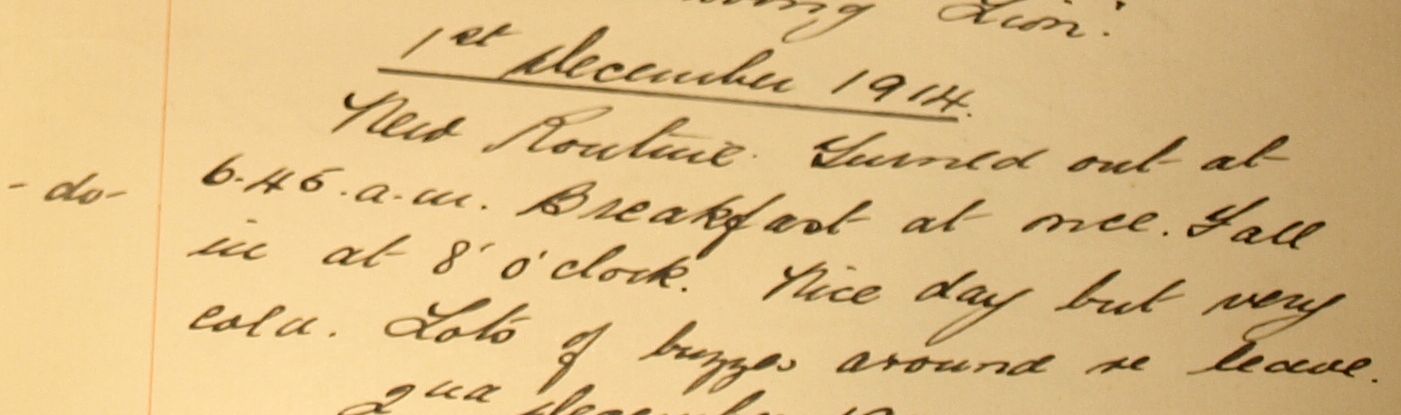 Lion".
1st December 1914.
New Routine. Turned out at
- do - 6.45.a.m. Breakfast at once. Fall
in at 8 o'clock. Nice day but very
cold. Lots of buzzes around re leave.
2nd December 19